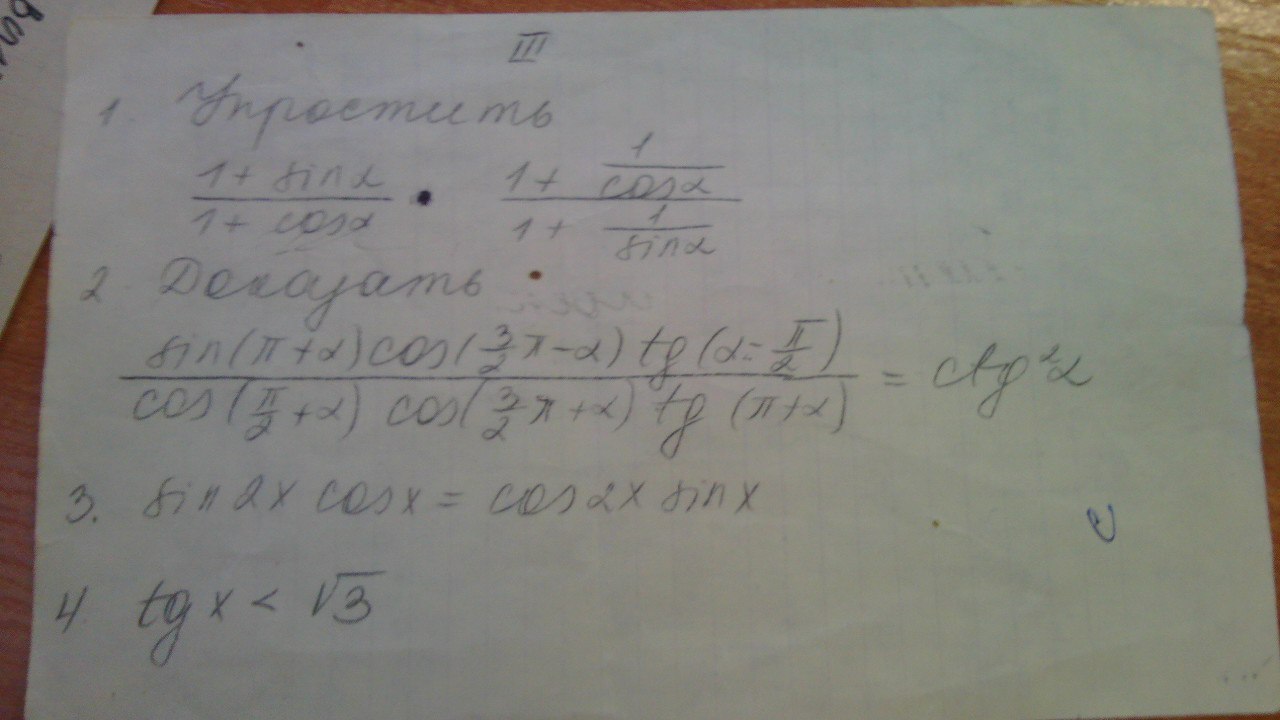 III
1. Упростить
(1 + sin α)/(1 + cos α) • (1 + 1/cos α)/(1 + 1/sin α)
2. Доказать
(sin(π+α) cos(3/2 π-α) tg(α-π/2))/(cos(π/2+α) cos(3/2 π+α) tg(π+α)) = ctg²α
3. sin 2x cos x = cos 2x sin x
4 tg x < √3